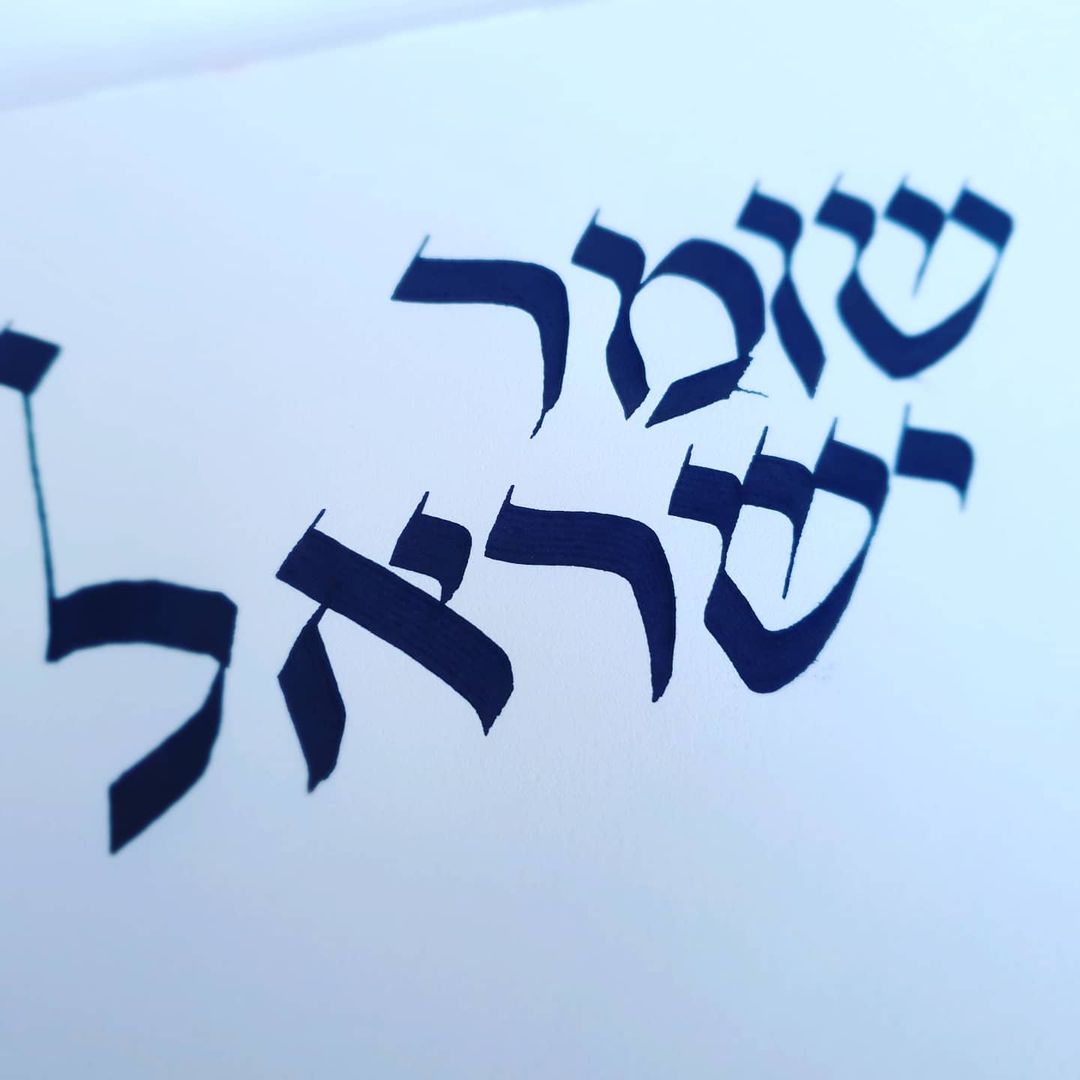 שומר
ישראל